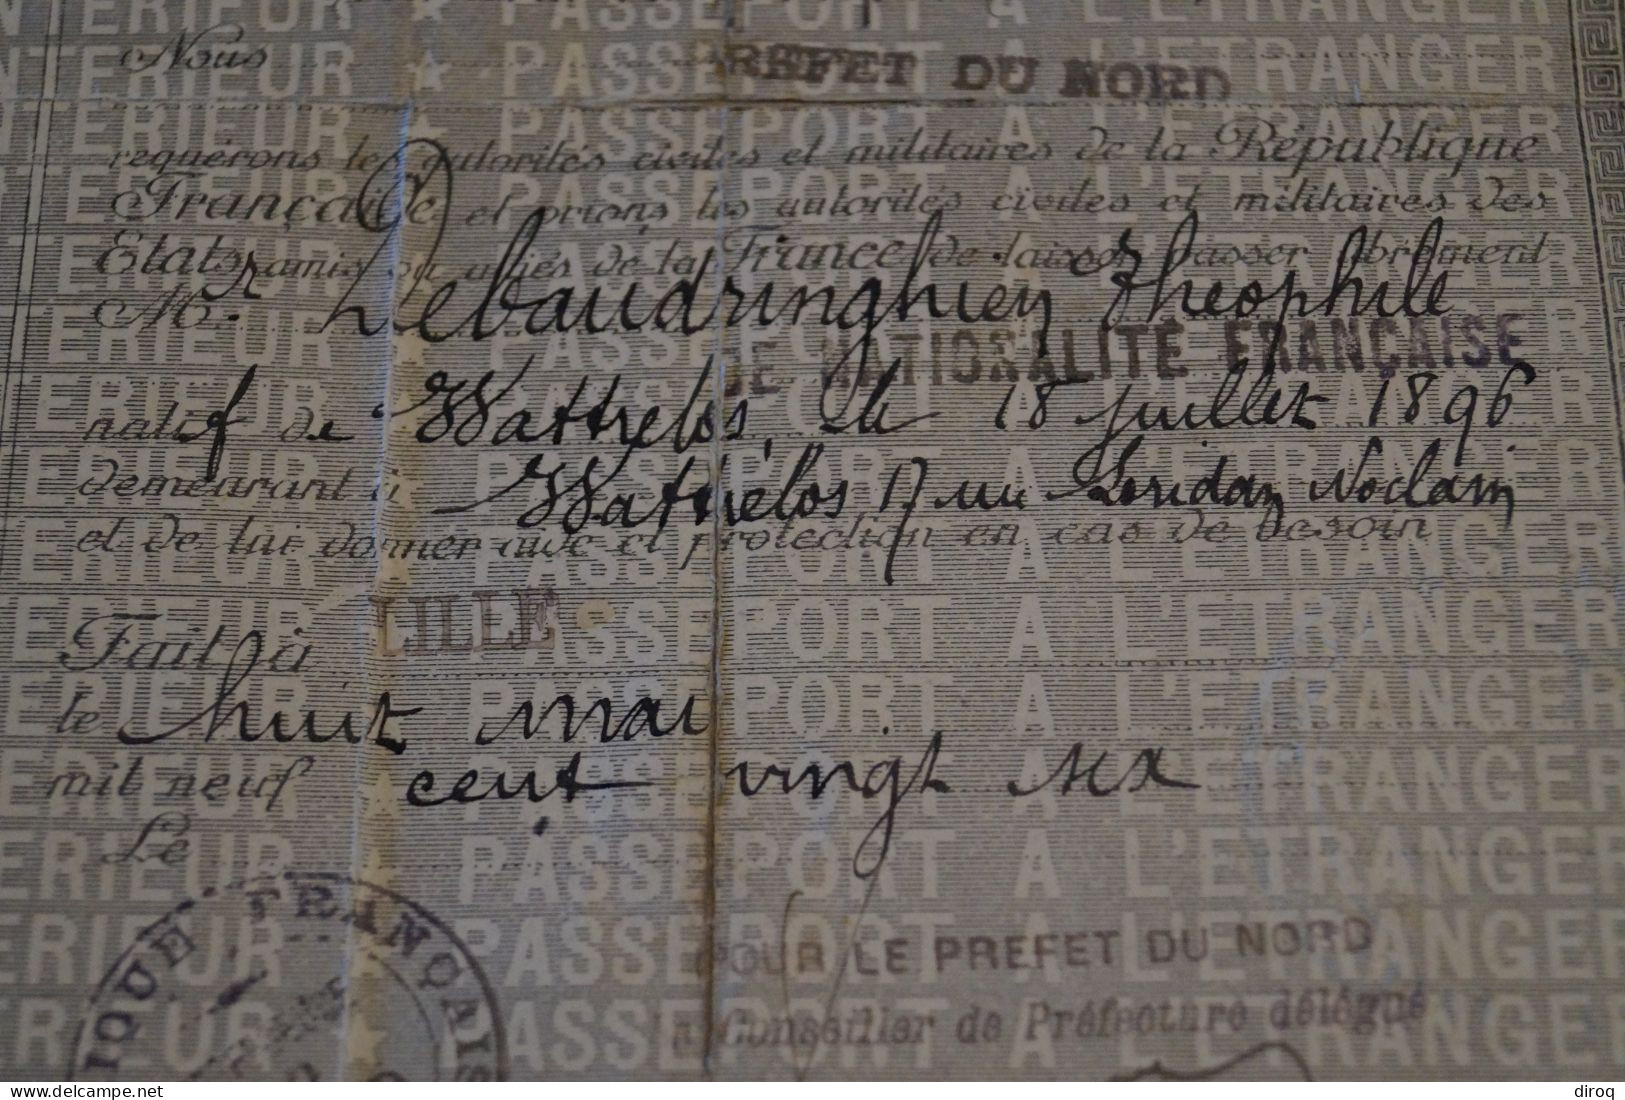 INTERIEUR ★ PASSEPORT A L'ETRANGER
Nous PREFET DU NORD
requérons les autorités civiles et militaires de la République
Française et prions les autorités civiles et militaires des
Etats amis ou alliés de la France de laisser passer librement
M. Debaudringhien Théophile
DE NATIONALITÉ FRANÇAISE
natif de Wattrelos, le 18 juillet 1896
demeurant à Wattrelos 17 rue Loridan Noclain
et de lui donner aide et protection en cas de besoin
Fait à LILLE
le huit mai
mil neuf cent vingt six
Le
IQUE FRANÇAIS
POUR LE PREFET DU NORD
Conseiller de Préfecture délégué
diroq